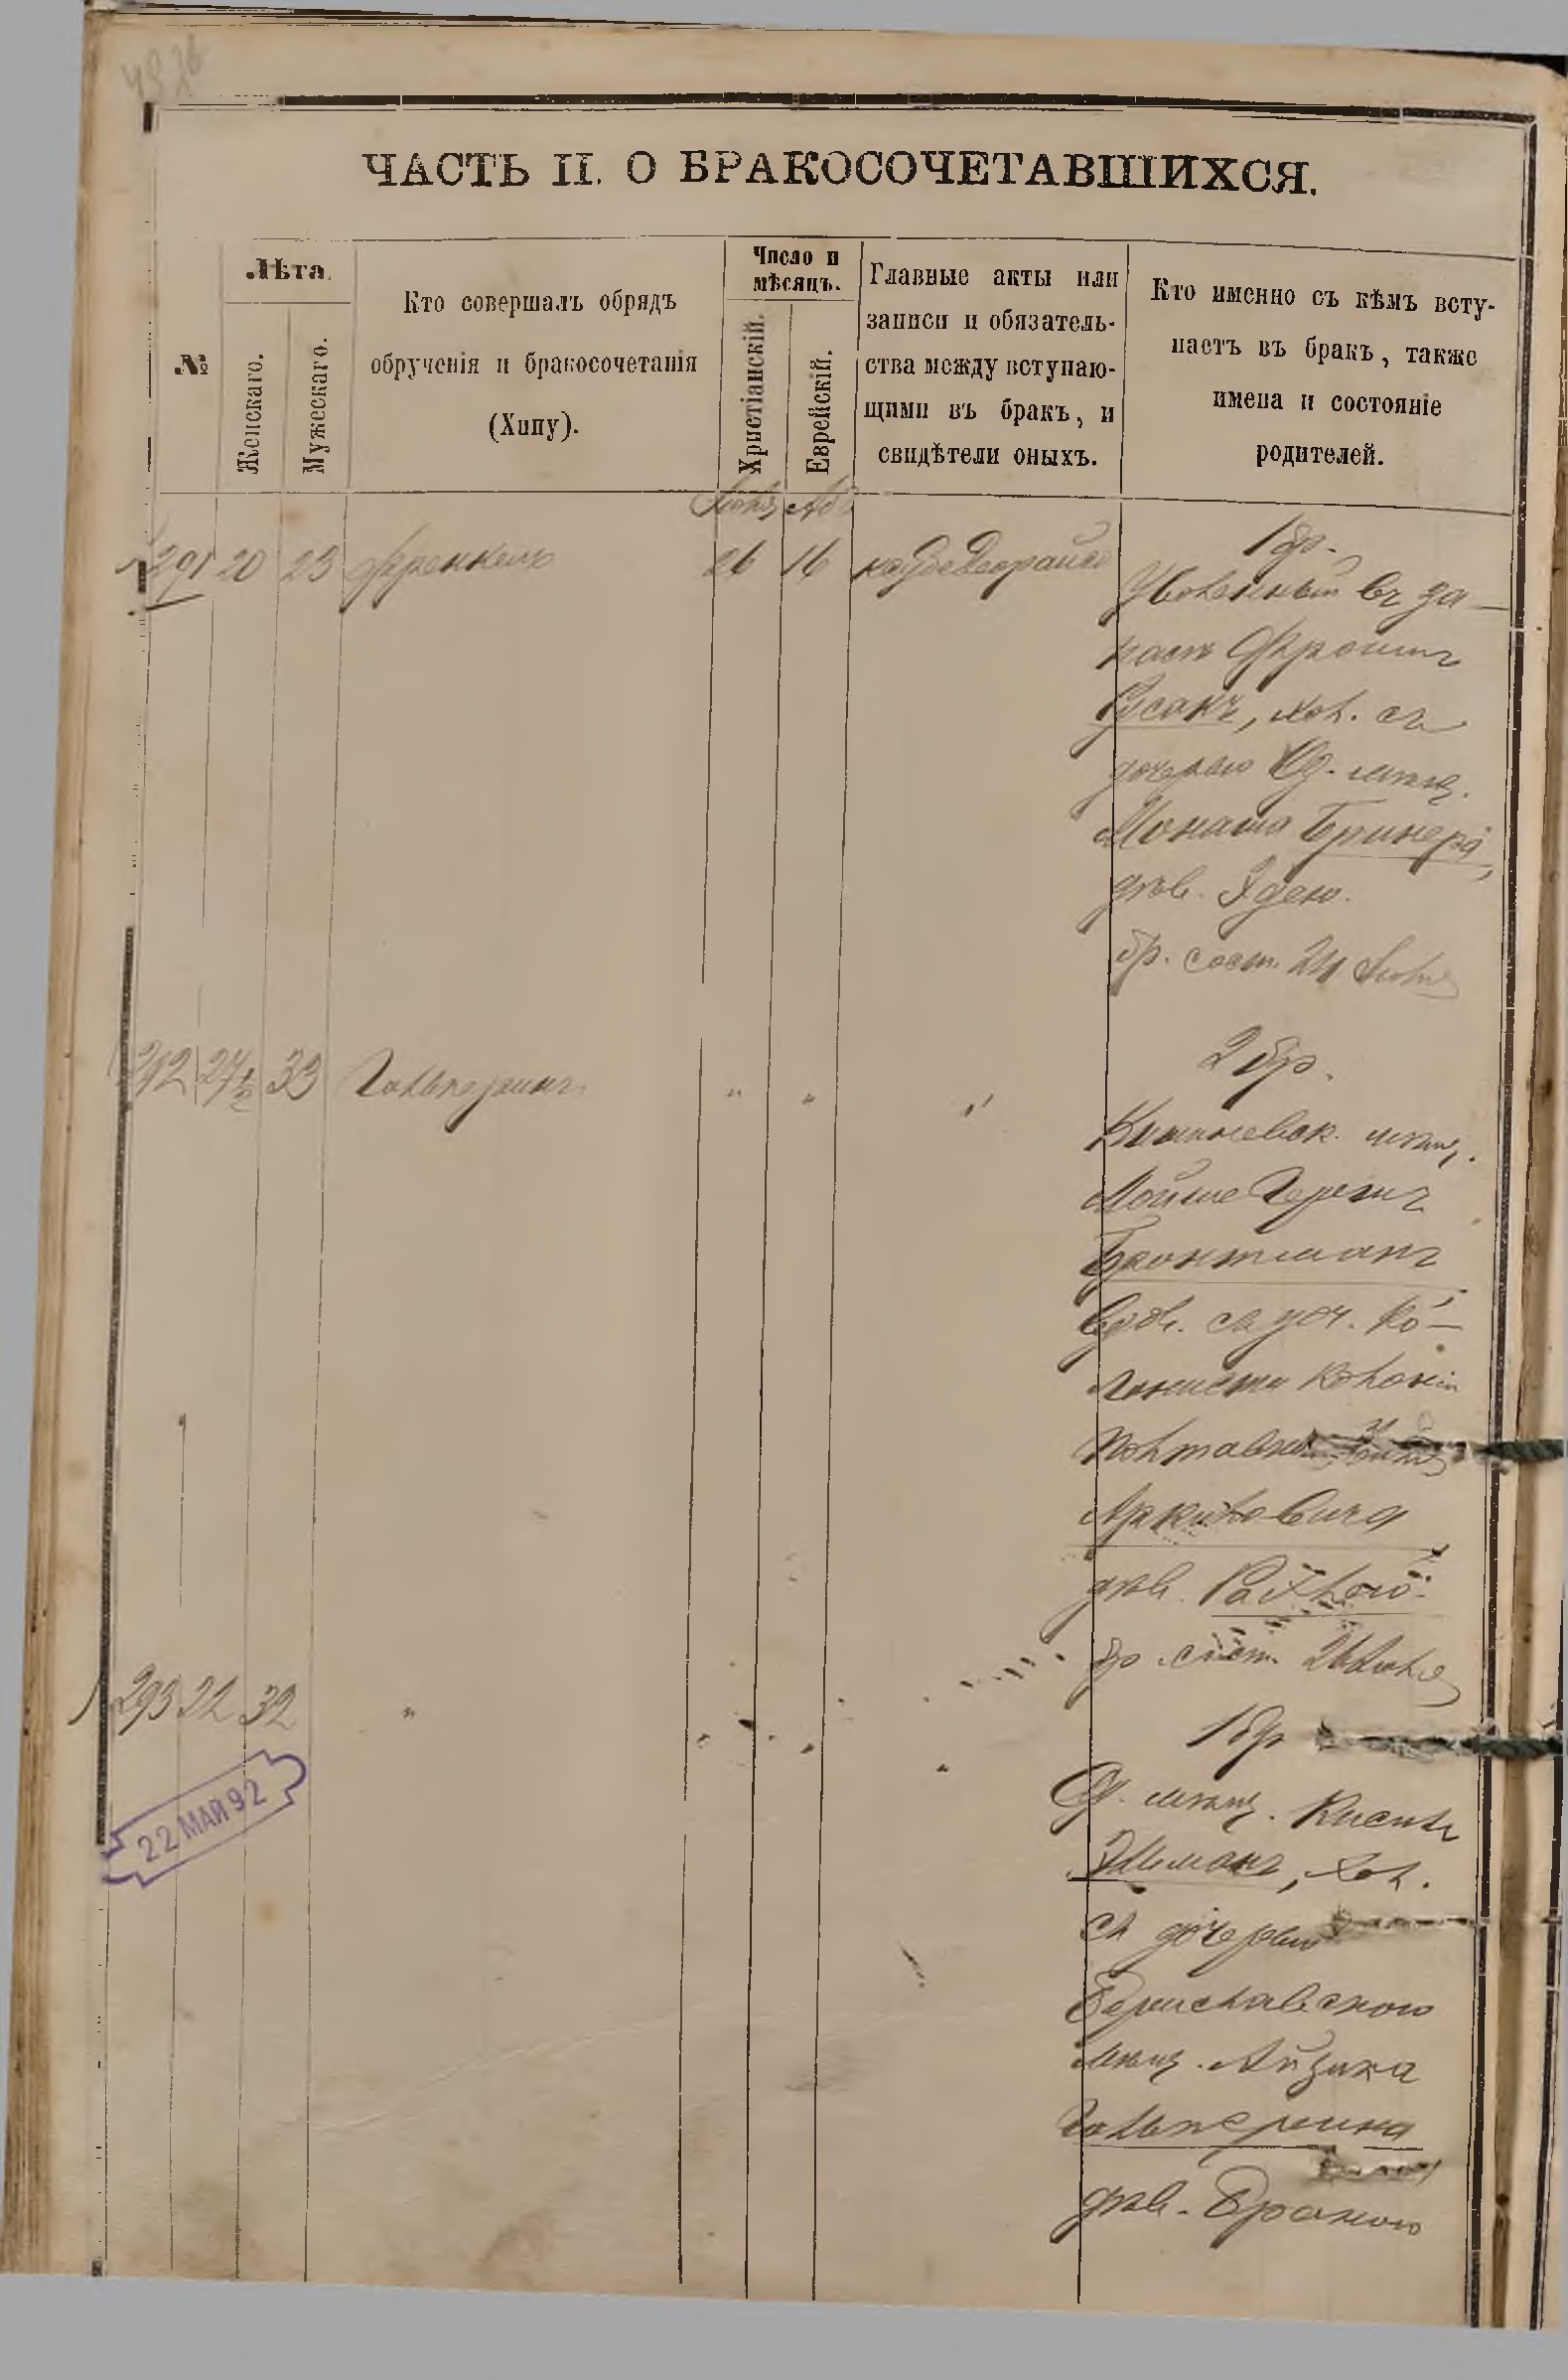 ЧАСТЬ II. О БРАКОСОЧЕТАВШИХСЯ.
№
Лѣта.
Женскаго.
Мужескаго.
Кто совершалъ обрядъ
обрученія и бракосочетанія
(Хипу).
Число и
мѣсяцъ.
Христіанскій.
Еврейскій.
Главные акты или
записи и обязатель-
ства между вступаю-
щими въ бракъ, и
свидѣтели оныхъ.
Кто именно съ кѣмъ всту-
паетъ въ бракъ, также
имена и состояніе
родителей.
Іюль Ав
291 20 23 Френкель 26 16
1 бр.
Уволенный въ за-
пасъ Фроимъ
Русакъ, хол. съ
дочерью Од. мѣщ.
Монаша Бринера,
дѣв. Эдею.
бр. сост. 24 Іюля
292 24½ 33 Гальперинъ " " "
2 бр.
Кишиневск. мѣщ.
Мойше Герш
Бронтманъ
вдов. съ доч. ко-
лониста колоніи
Полтавк
Аркиловича
дѣв. Рахлею
бр. сост. 26 Іюля
293 22 32 " " " "
1 бр
Од. мѣщ. Кисиль
Эльманъ, хол.
съ дочерью
Бериславского
мѣщ. Айзика
Гальперина
дѣв. Браною
22 МАЙ 92